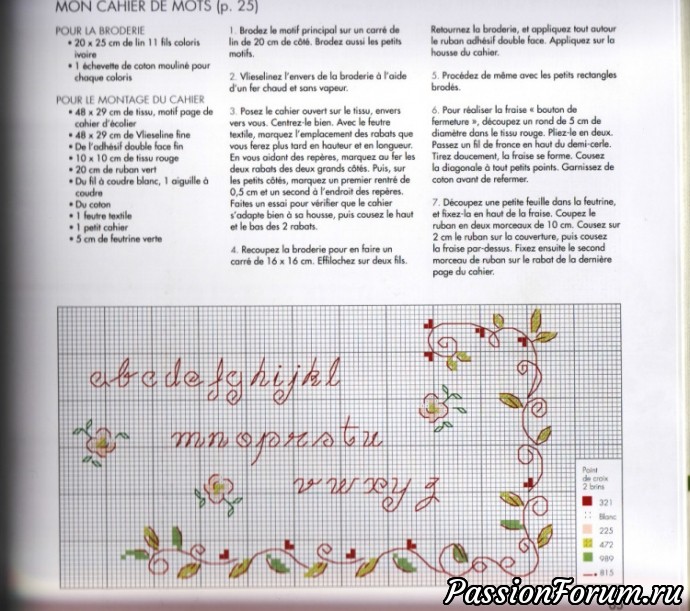 MON CAHIER DE MOTS (p. 25)
POUR LA BRODERIE
• 20 x 25 cm de lin 11 fils coloris
ivoire
• 1 échevette de coton mouliné pour
chaque coloris
POUR LE MONTAGE DU CAHIER
• 48 x 29 cm de tissu, motif page de
cahier d'écolier
• 48 x 29 cm de Vlieseline fine
• De l'adhésif double face fin
• 10 x 10 cm de tissu rouge
• 20 cm de ruban vert
• Du fil à coudre blanc, 1 aiguille à
coudre
• Du coton
• 1 feutre textile
• 1 petit cahier
• 5 cm de feutrine verte
1. Brodez le motif principal sur un carré de
lin de 20 cm de côté. Brodez aussi les petits
motifs.
2. Vlieselinez l'envers de la broderie à l'aide
d'un fer chaud et sans vapeur.
3. Posez le cahier ouvert sur le tissu, envers
vers vous. Centrez-le bien. Avec le feutre
textile, marquez l'emplacement des rabats que
vous ferez plus tard en hauteur et en longueur.
En vous aidant des repères, marquez au fer les
deux rabats des deux grands côtés. Puis, sur
les petits côtés, marquez un premier rentré de
0,5 cm et un second à l'endroit des repères.
Faites un essai pour vérifier que le cahier
s'adapte bien à sa housse, puis cousez le haut
et le bas des 2 rabats.
4. Recoupez la broderie pour en faire un
carré de 16 x 16 cm. Effilochez sur deux fils.
Retournez la broderie, et appliquez tout autour
le ruban adhésif double face. Appliquez sur la
housse du cahier.
5. Procédez de même avec les petits rectangles
brodés.
6. Pour réaliser la fraise « bouton de
fermeture », découpez un rond de 5 cm de
diamètre dans le tissu rouge. Pliez-le en deux.
Passez un fil de fronce en haut du demi-cercle.
Tirez doucement, la fraise se forme. Cousez
la diagonale à tout petits points. Garnissez de
coton avant de refermer.
7. Découpez une petite feuille dans la feutrine,
et fixez-la en haut de la fraise. Coupez le
ruban en deux morceaux de 10 cm. Cousez sur
2 cm le ruban sur la couverture, puis cousez
la fraise par-dessus. Fixez ensuite le second
morceau de ruban sur le rabat de la dernière
page du cahier.
abcdefghijkl
mnopqrstu
vwxyz
Point
de croix
2 brins
321
Blanc
225
472
989
815
PassionForum.ru